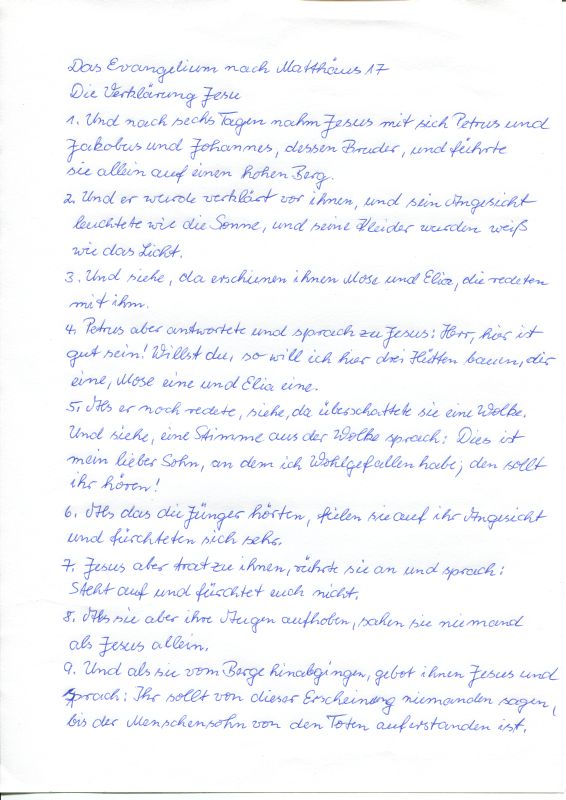 Das Evangelium nach Matthäus 17
Die Verklärung Jesu
1. Und nach sechs Tagen nahm Jesus mit sich Petrus und
Jakobus und Johannes, dessen Bruder, und führte
sie allein auf einen hohen Berg.
2. Und er wurde verklärt vor ihnen, und sein Angesicht
leuchtete wie die Sonne, und seine Kleider wurden weiß
wie das Licht.
3. Und siehe, da erschienen ihnen Mose und Elia, die redeten
mit ihm.
4. Petrus aber antwortete und sprach zu Jesus: Herr, hier ist
gut sein! Willst du, so will ich hier drei Hütten bauen, dir
eine, Mose eine und Elia eine.
5. Als er noch redete, siehe, da überschattete sie eine Wolke.
Und siehe, eine Stimme aus der Wolke sprach: Dies ist
mein lieber Sohn, an dem ich Wohlgefallen habe; den sollt
ihr hören!
6. Als das die Jünger hörten, fielen sie auf ihr Angesicht
und fürchteten sich sehr.
7. Jesus aber trat zu ihnen, rührte sie an und sprach:
Steht auf und fürchtet euch nicht.
8. Als sie aber ihre Augen aufhoben, sahen sie niemand
als Jesus allein.
9. Und als sie vom Berge hinabgingen, gebot ihnen Jesus und
sprach: Ihr sollt von dieser Erscheinung niemanden sagen,
bis der Menschensohn von den Toten auferstanden ist.